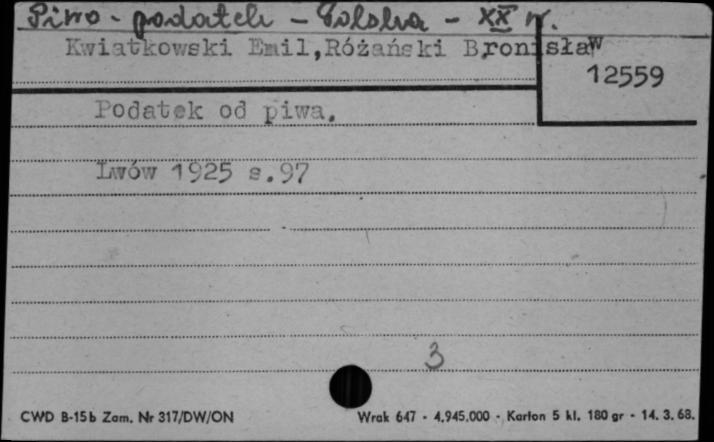 Piwo - podatek - Polska - XX w.
Kwiatkowski Emil, Różański Bronisław
12559
Podatek od piwa.
Lwów 1925 s.97
3
CWD B-15b Zam. Nr 317/DW/ON
Wrak 647 - 4.945.000 - Karton 5 kl. 180 gr - 14. 3. 68.